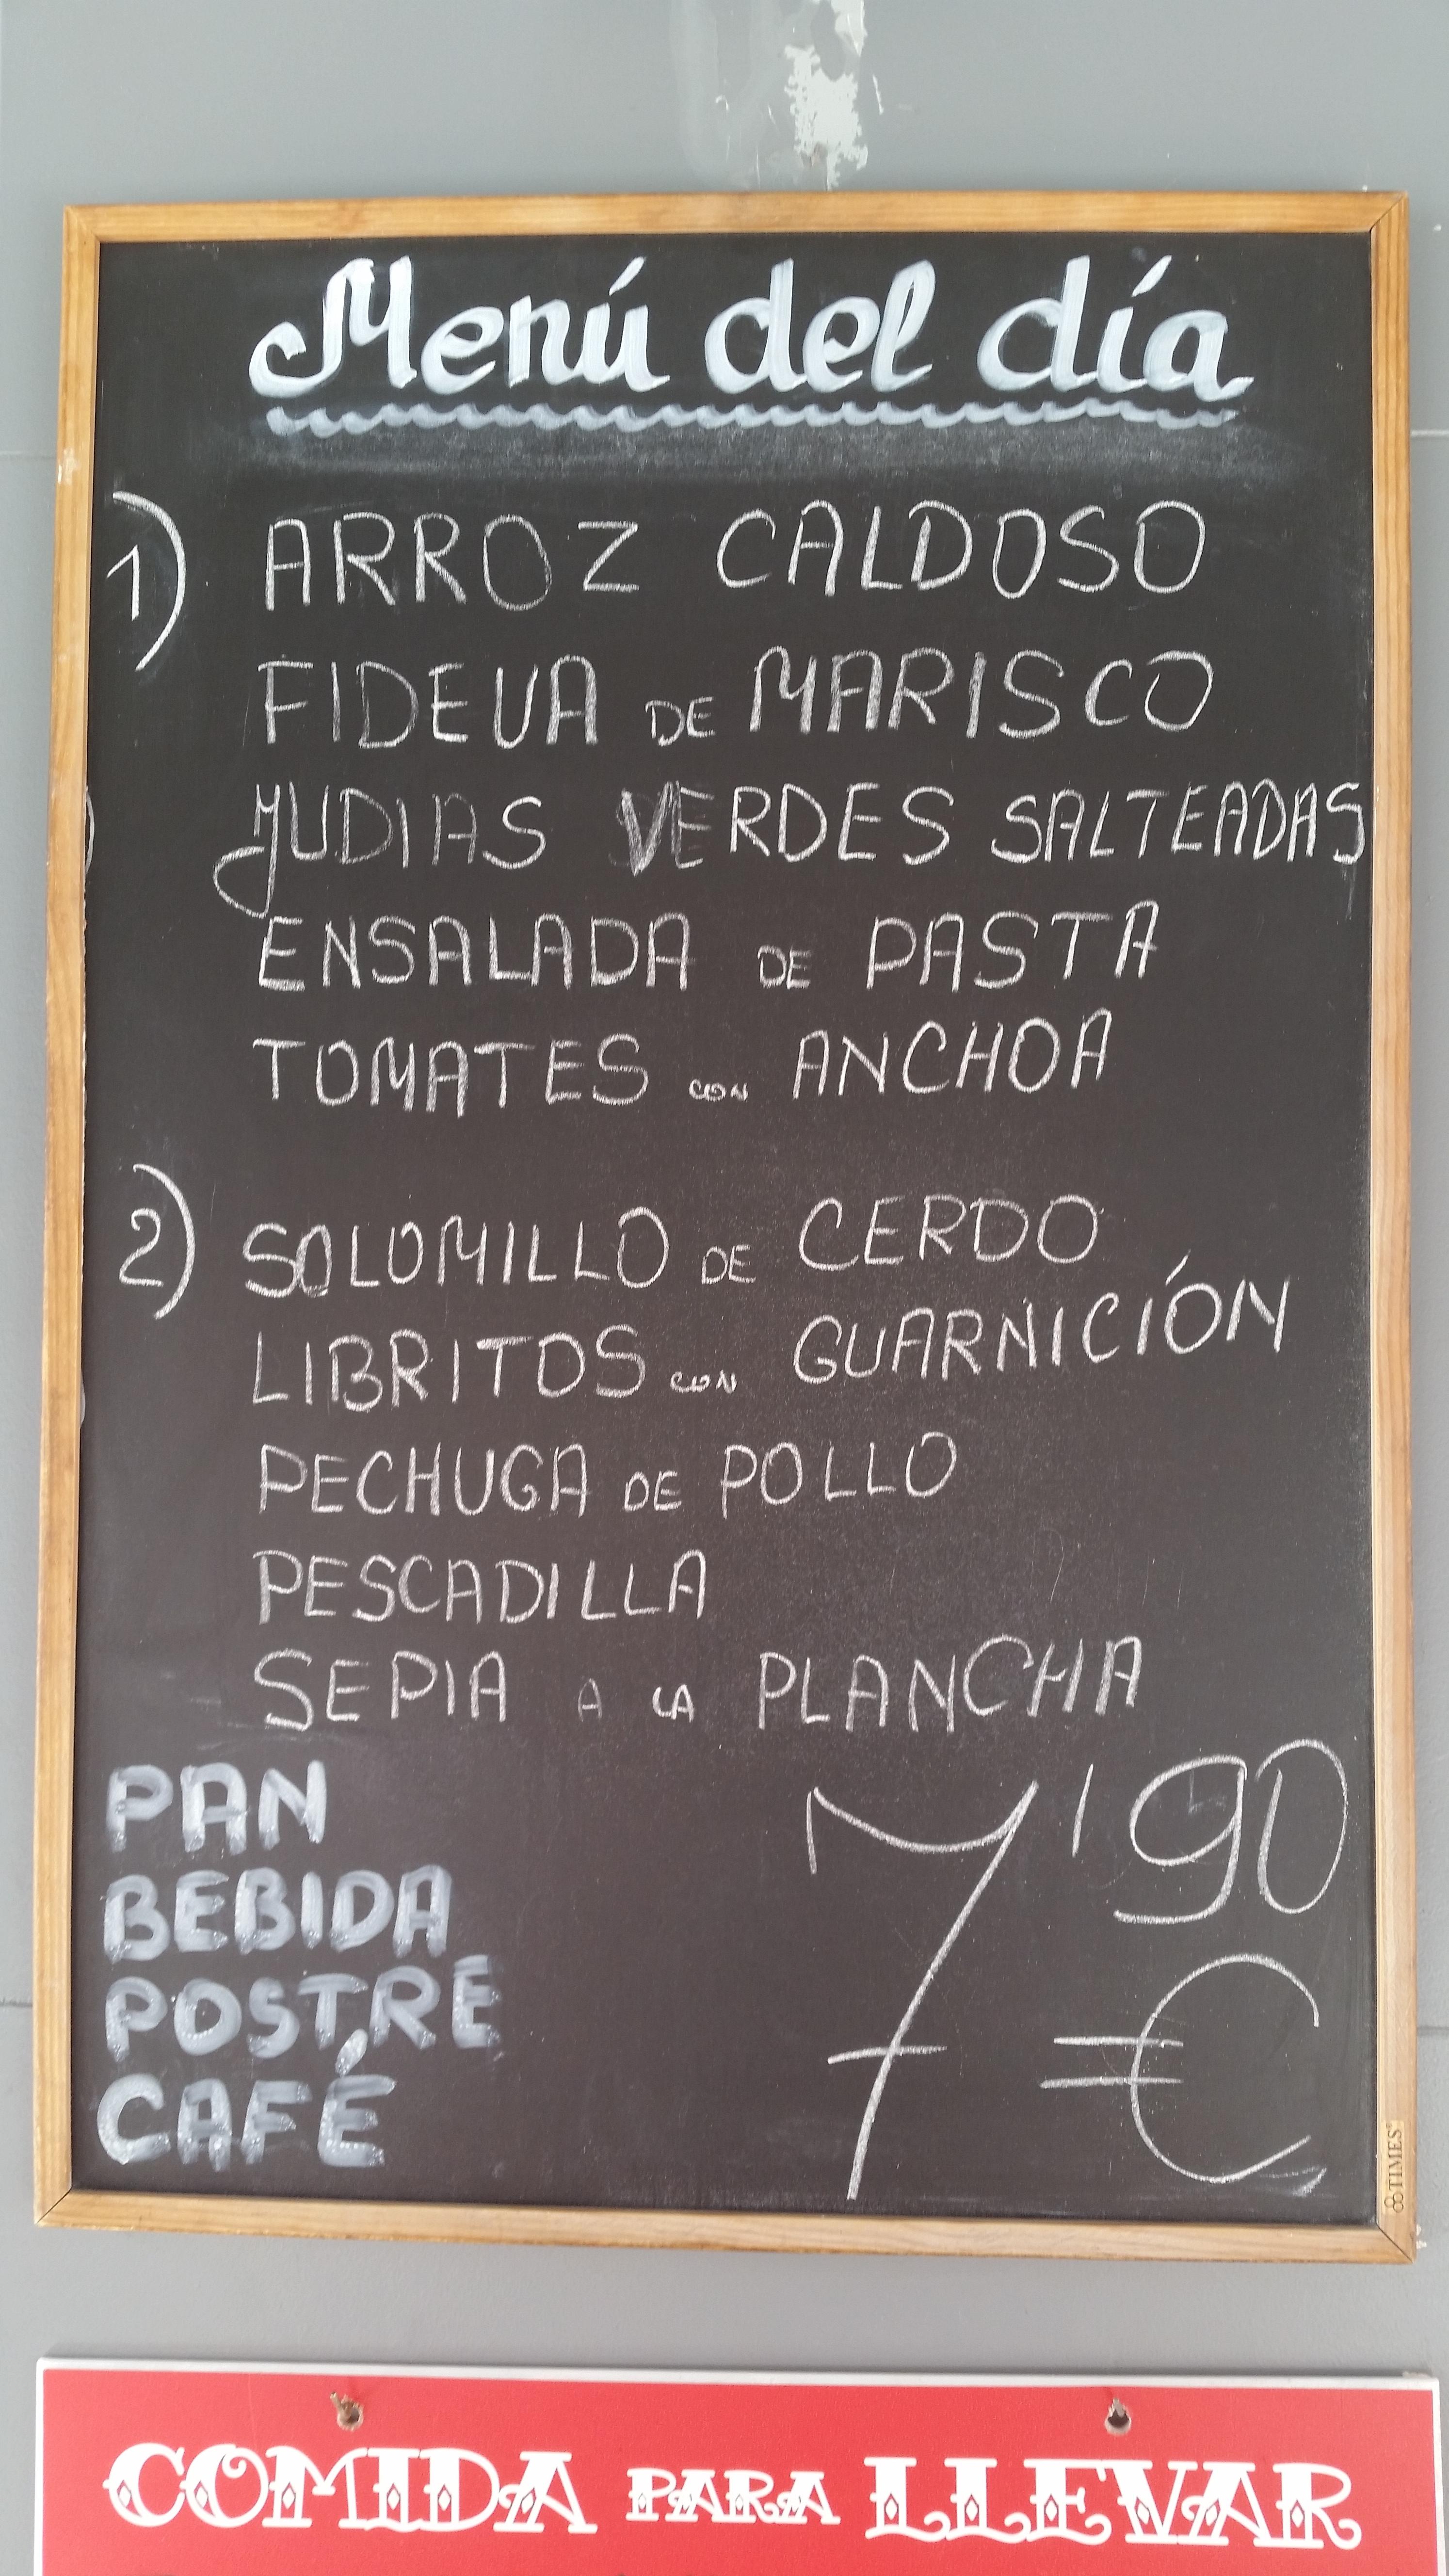 Menú del día
1) ARROZ CALDOSO
FIDEUA DE MARISCO
JUDIAS VERDES SALTEADAS
ENSALADA DE PASTA
TOMATES CON ANCHOA
2) SOLOMILLO DE CERDO
LIBRITOS CON GUARNICIÓN
PECHUGA DE POLLO
PESCADILLA
SEPIA A LA PLANCHA
PAN
BEBIDA
POSTRE
CAFÉ
7'90
€
TIMES
COMIDA PARA LLEVAR